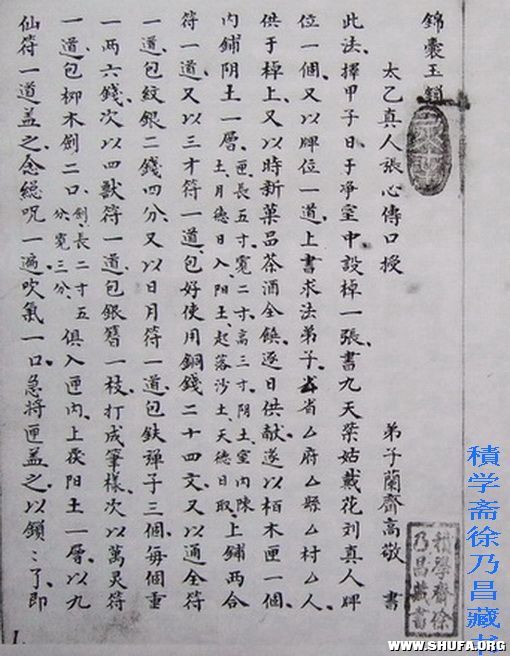 錦囊玉鎖
太乙真人張心傳口授
弟子蘭齋高敬書
此法擇甲子日于凈室中設棹一張書九天紫姑戴花刘真人牌
位一個又以牌位一道上書求法弟子厶省厶府厶縣厶村厶人
供于棹上又以時新菓品茶酒全饌逐日供献遂以栢木匣一個
內鋪阴土一層匣長五寸寬二寸高三寸阴土室內陳土月德日入阳土起落沙土天德日取上鋪两合
符一道又以三才符一道包好使用銅錢二十四文又以通全符
一道包紋銀二錢四分又以日月符一道包鉄弹子三個每個重
一两六錢次以四獸符一道包銀簪一枝打成筆樣次以萬灵符
一道包柳木劍二口劍長二寸五分寬三分俱入匣內上覆阳土一層以九
仙符一道盖之念總呪一遍吹氣一口急將匣盖之以鎖〻了即
積學齋徐乃昌藏書
積学斋徐乃昌藏书
1.
WWW.SHUFA.ORG